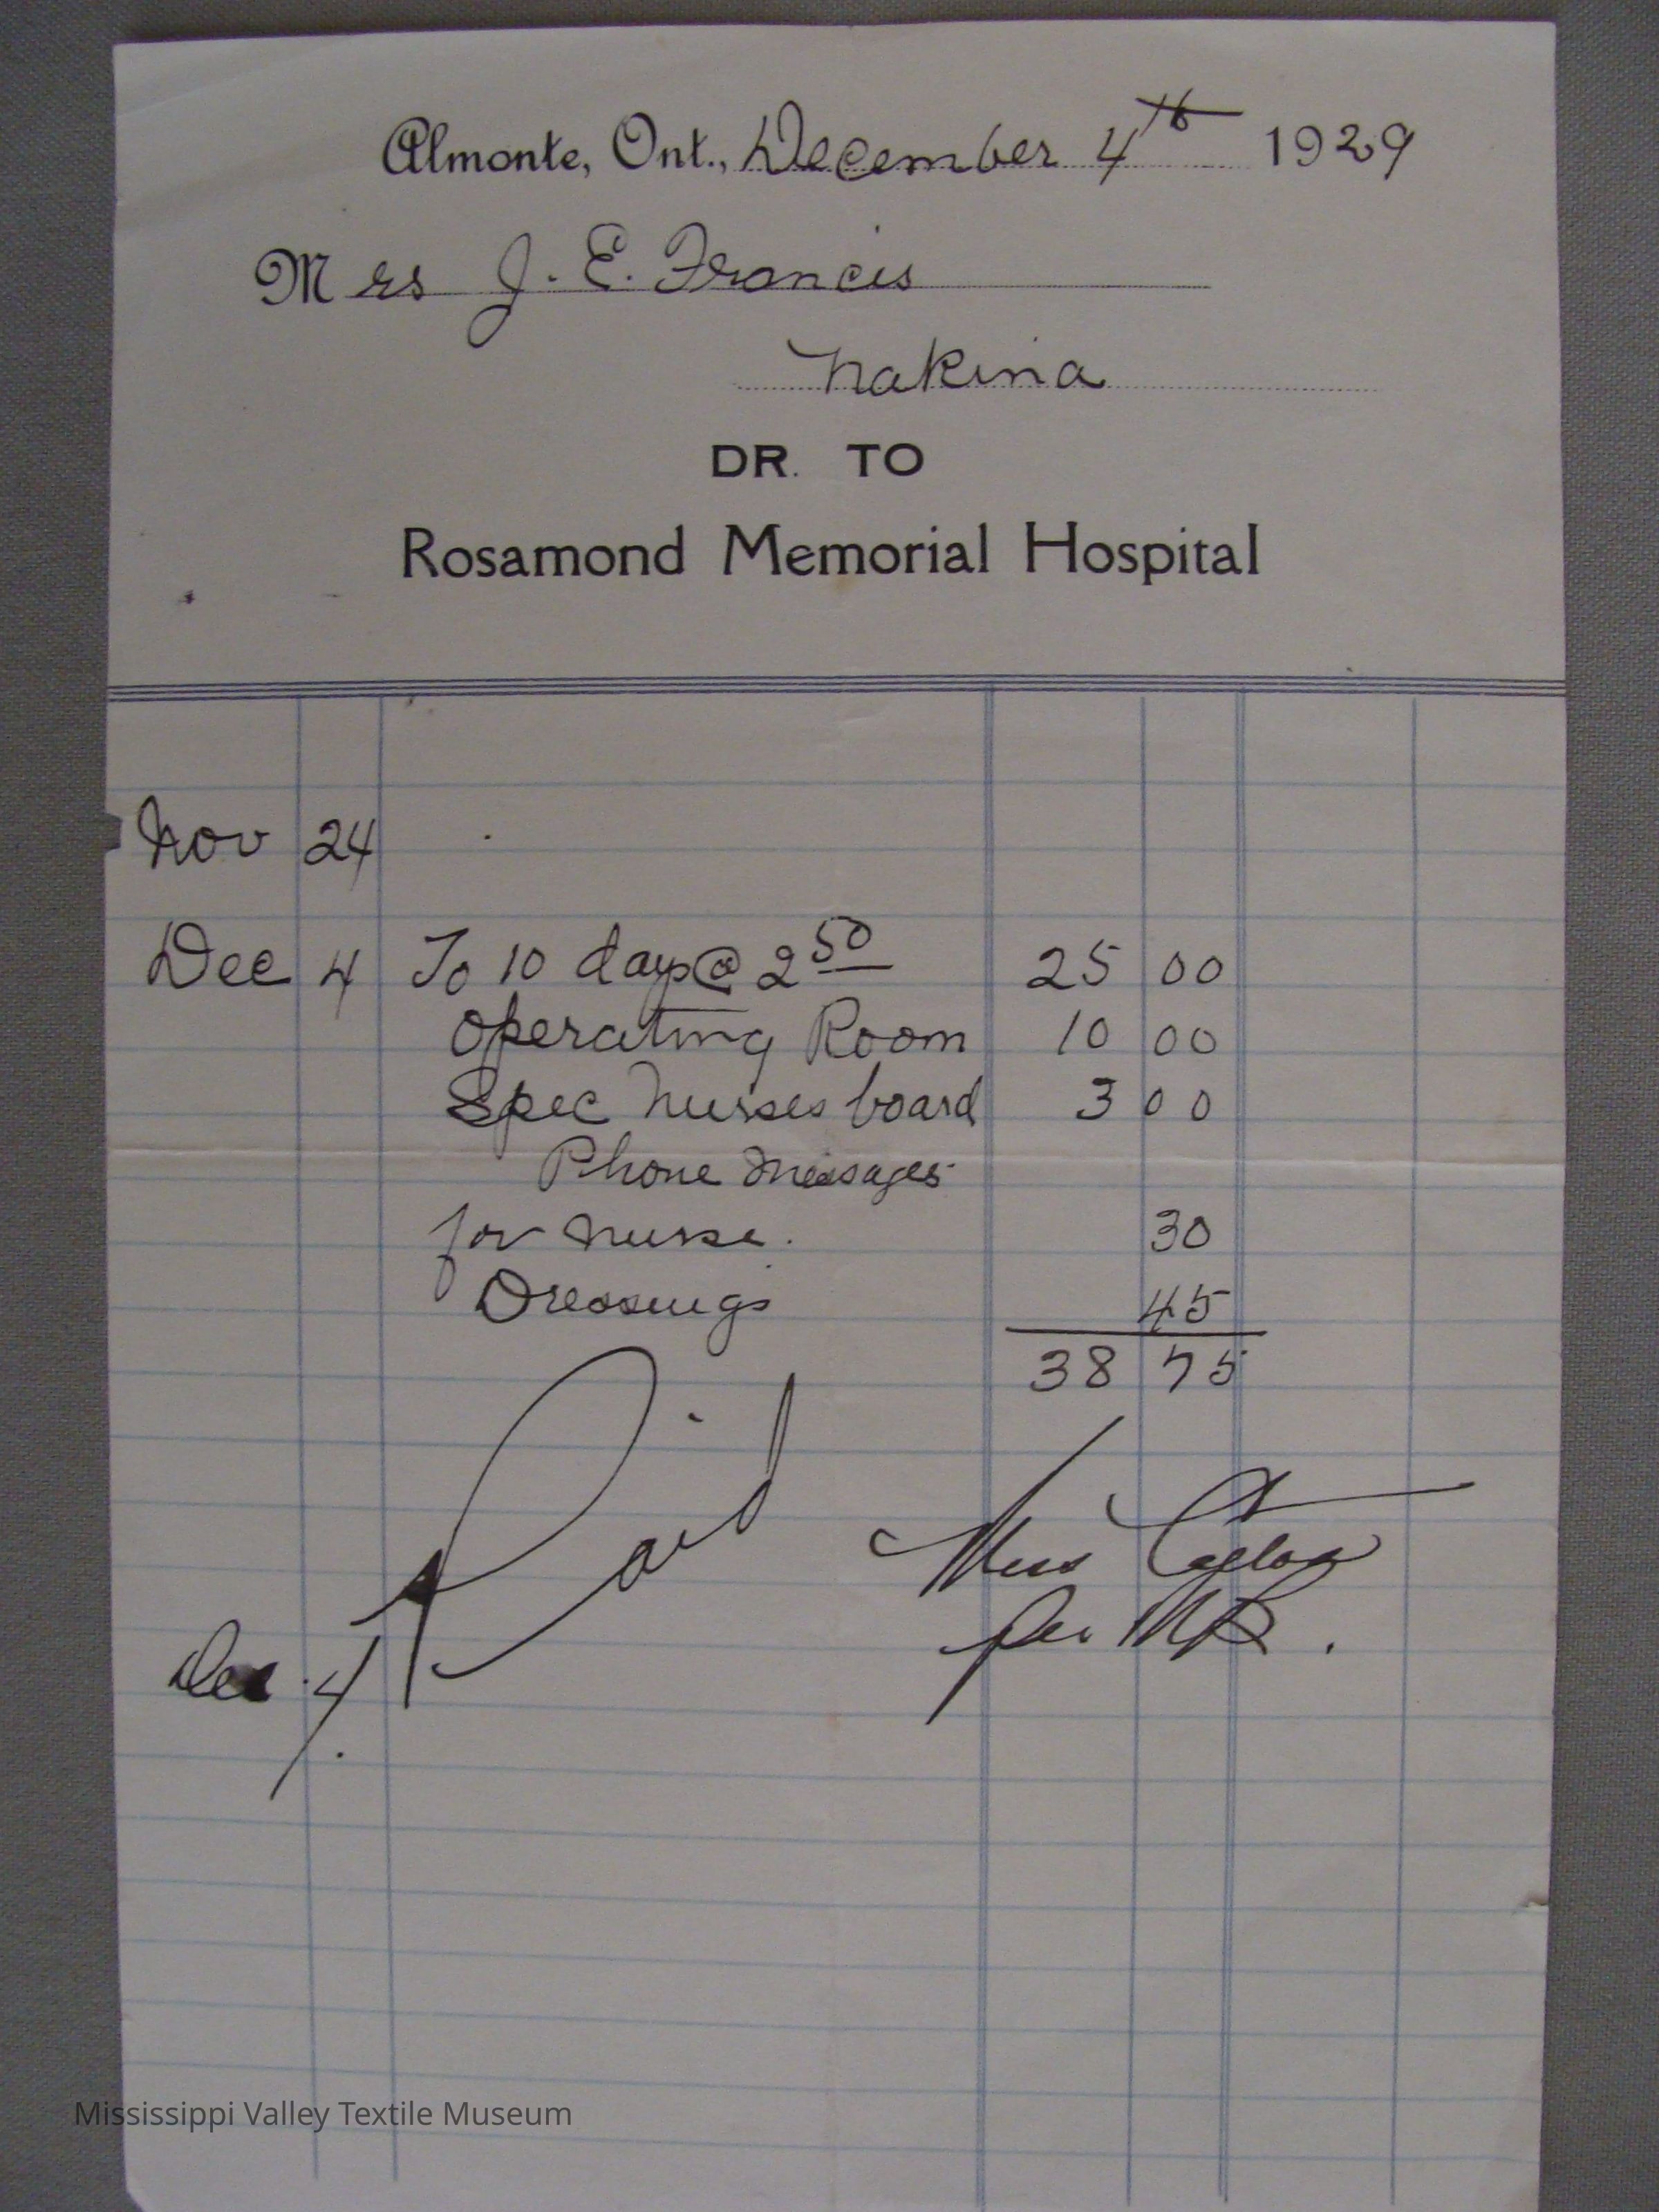 Almonte, Ont., December 4th 1929
Mrs J. E. Francis
Nakina
DR. TO
Rosamond Memorial Hospital
Nov 24
Dec 4 To 10 days @ 2 50 25 00
Operating Room 10 00
Spec Nurses board 3 00
Phone Messages
for nurse. 30
Dressings 45
38 75
Paid
Miss Taylor
per MR.
Dec. 4
Mississippi Valley Textile Museum